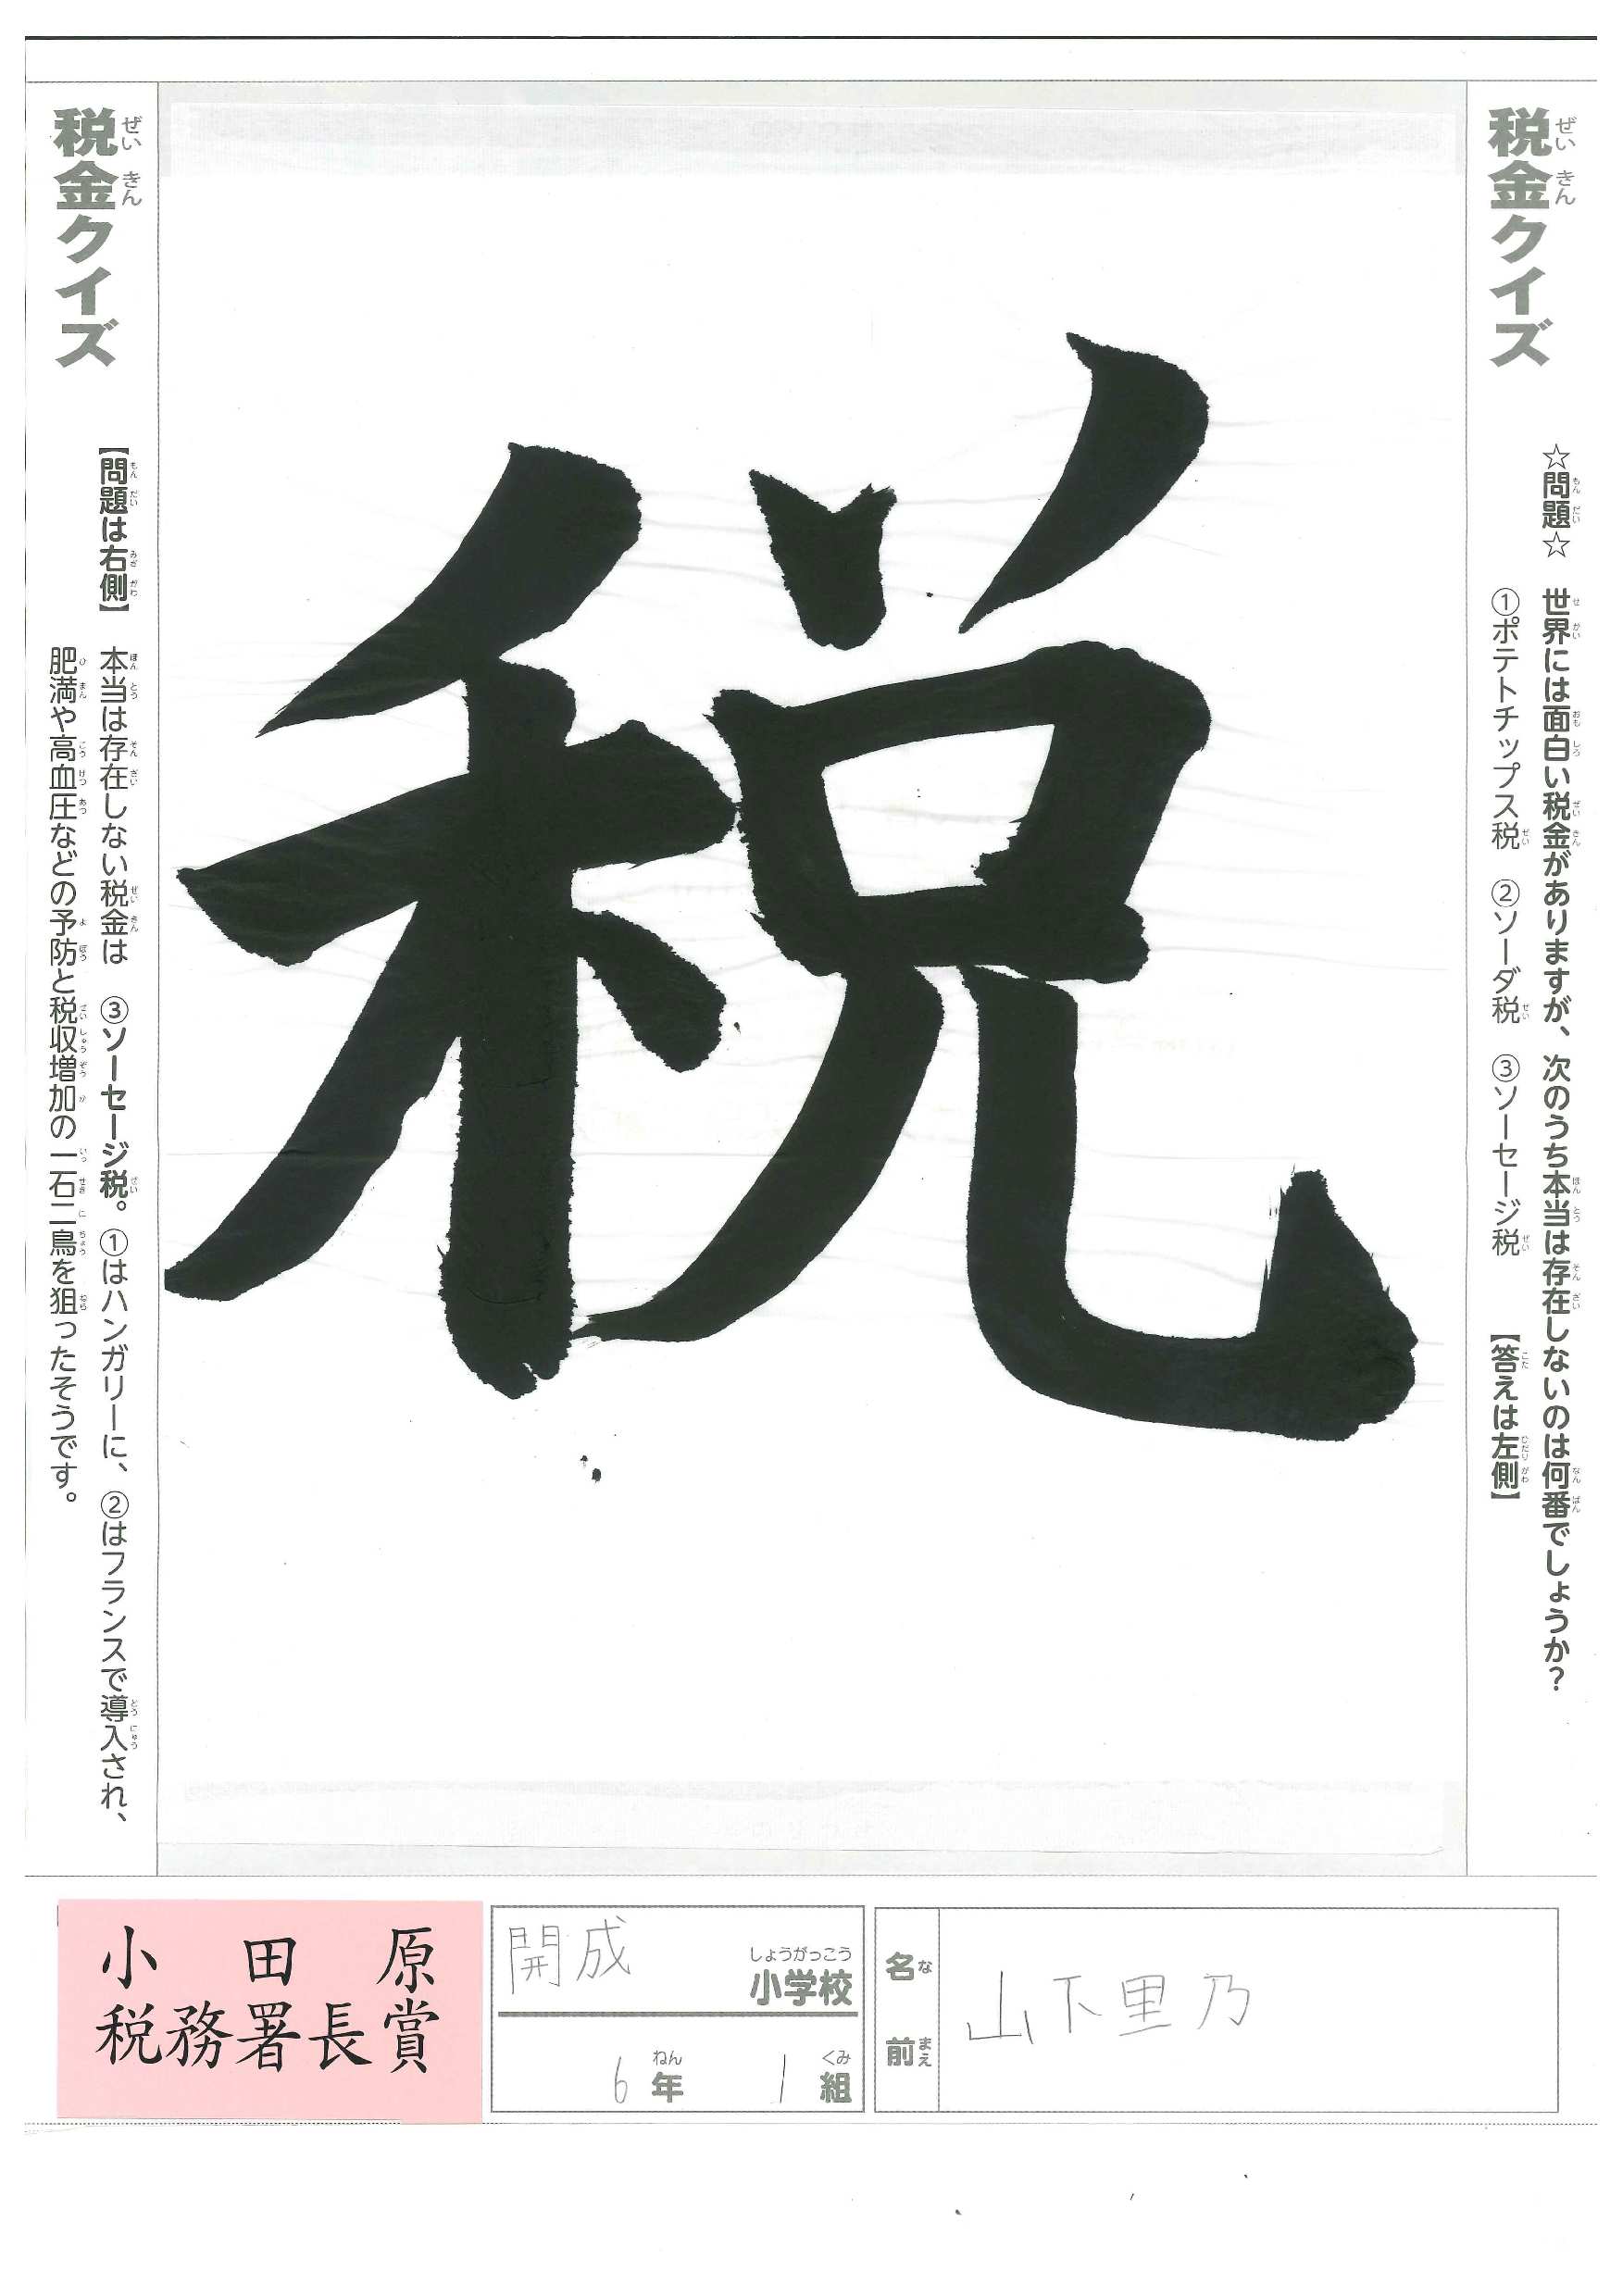 税金クイズ
☆問題☆ 世界には面白い税金がありますが、次のうち本当は存在しないのは何番でしょうか?
①ポテトチップス税 ②ソーダ税 ③ソーセージ税 【答えは左側】
税
税金クイズ
【問題は右側】 本当は存在しない税金は ③ソーセージ税。①はハンガリーに、②はフランスで導入され、
肥満や高血圧などの予防と税収増加の一石二鳥を狙ったそうです。
小田原
税務署長賞
開成 小学校
6年 1組
名前 山下里乃